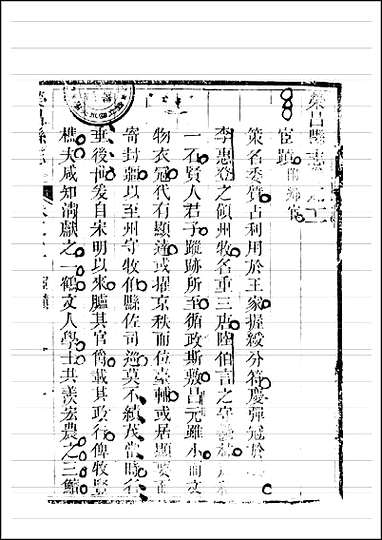 榮昌縣志卷之十
宦蹟
策名委質占利用於王家握綬分符慶彈冠於
李惠登之領州牧名重三唐陸伯言之守
一石賢人君子蹤跡所至循政斯敷昌元雖小而文
物衣冠代有顯達或擢京秩而位臺輔或居顯要而
寄封疆以至州守牧伯縣佐司巡莫不績茂當時名
垂後世爰自宋明以來臚其官階載其政行俾牧豎
樵夫咸知清獻之一鶴文人學士共羨宏農之三鱣